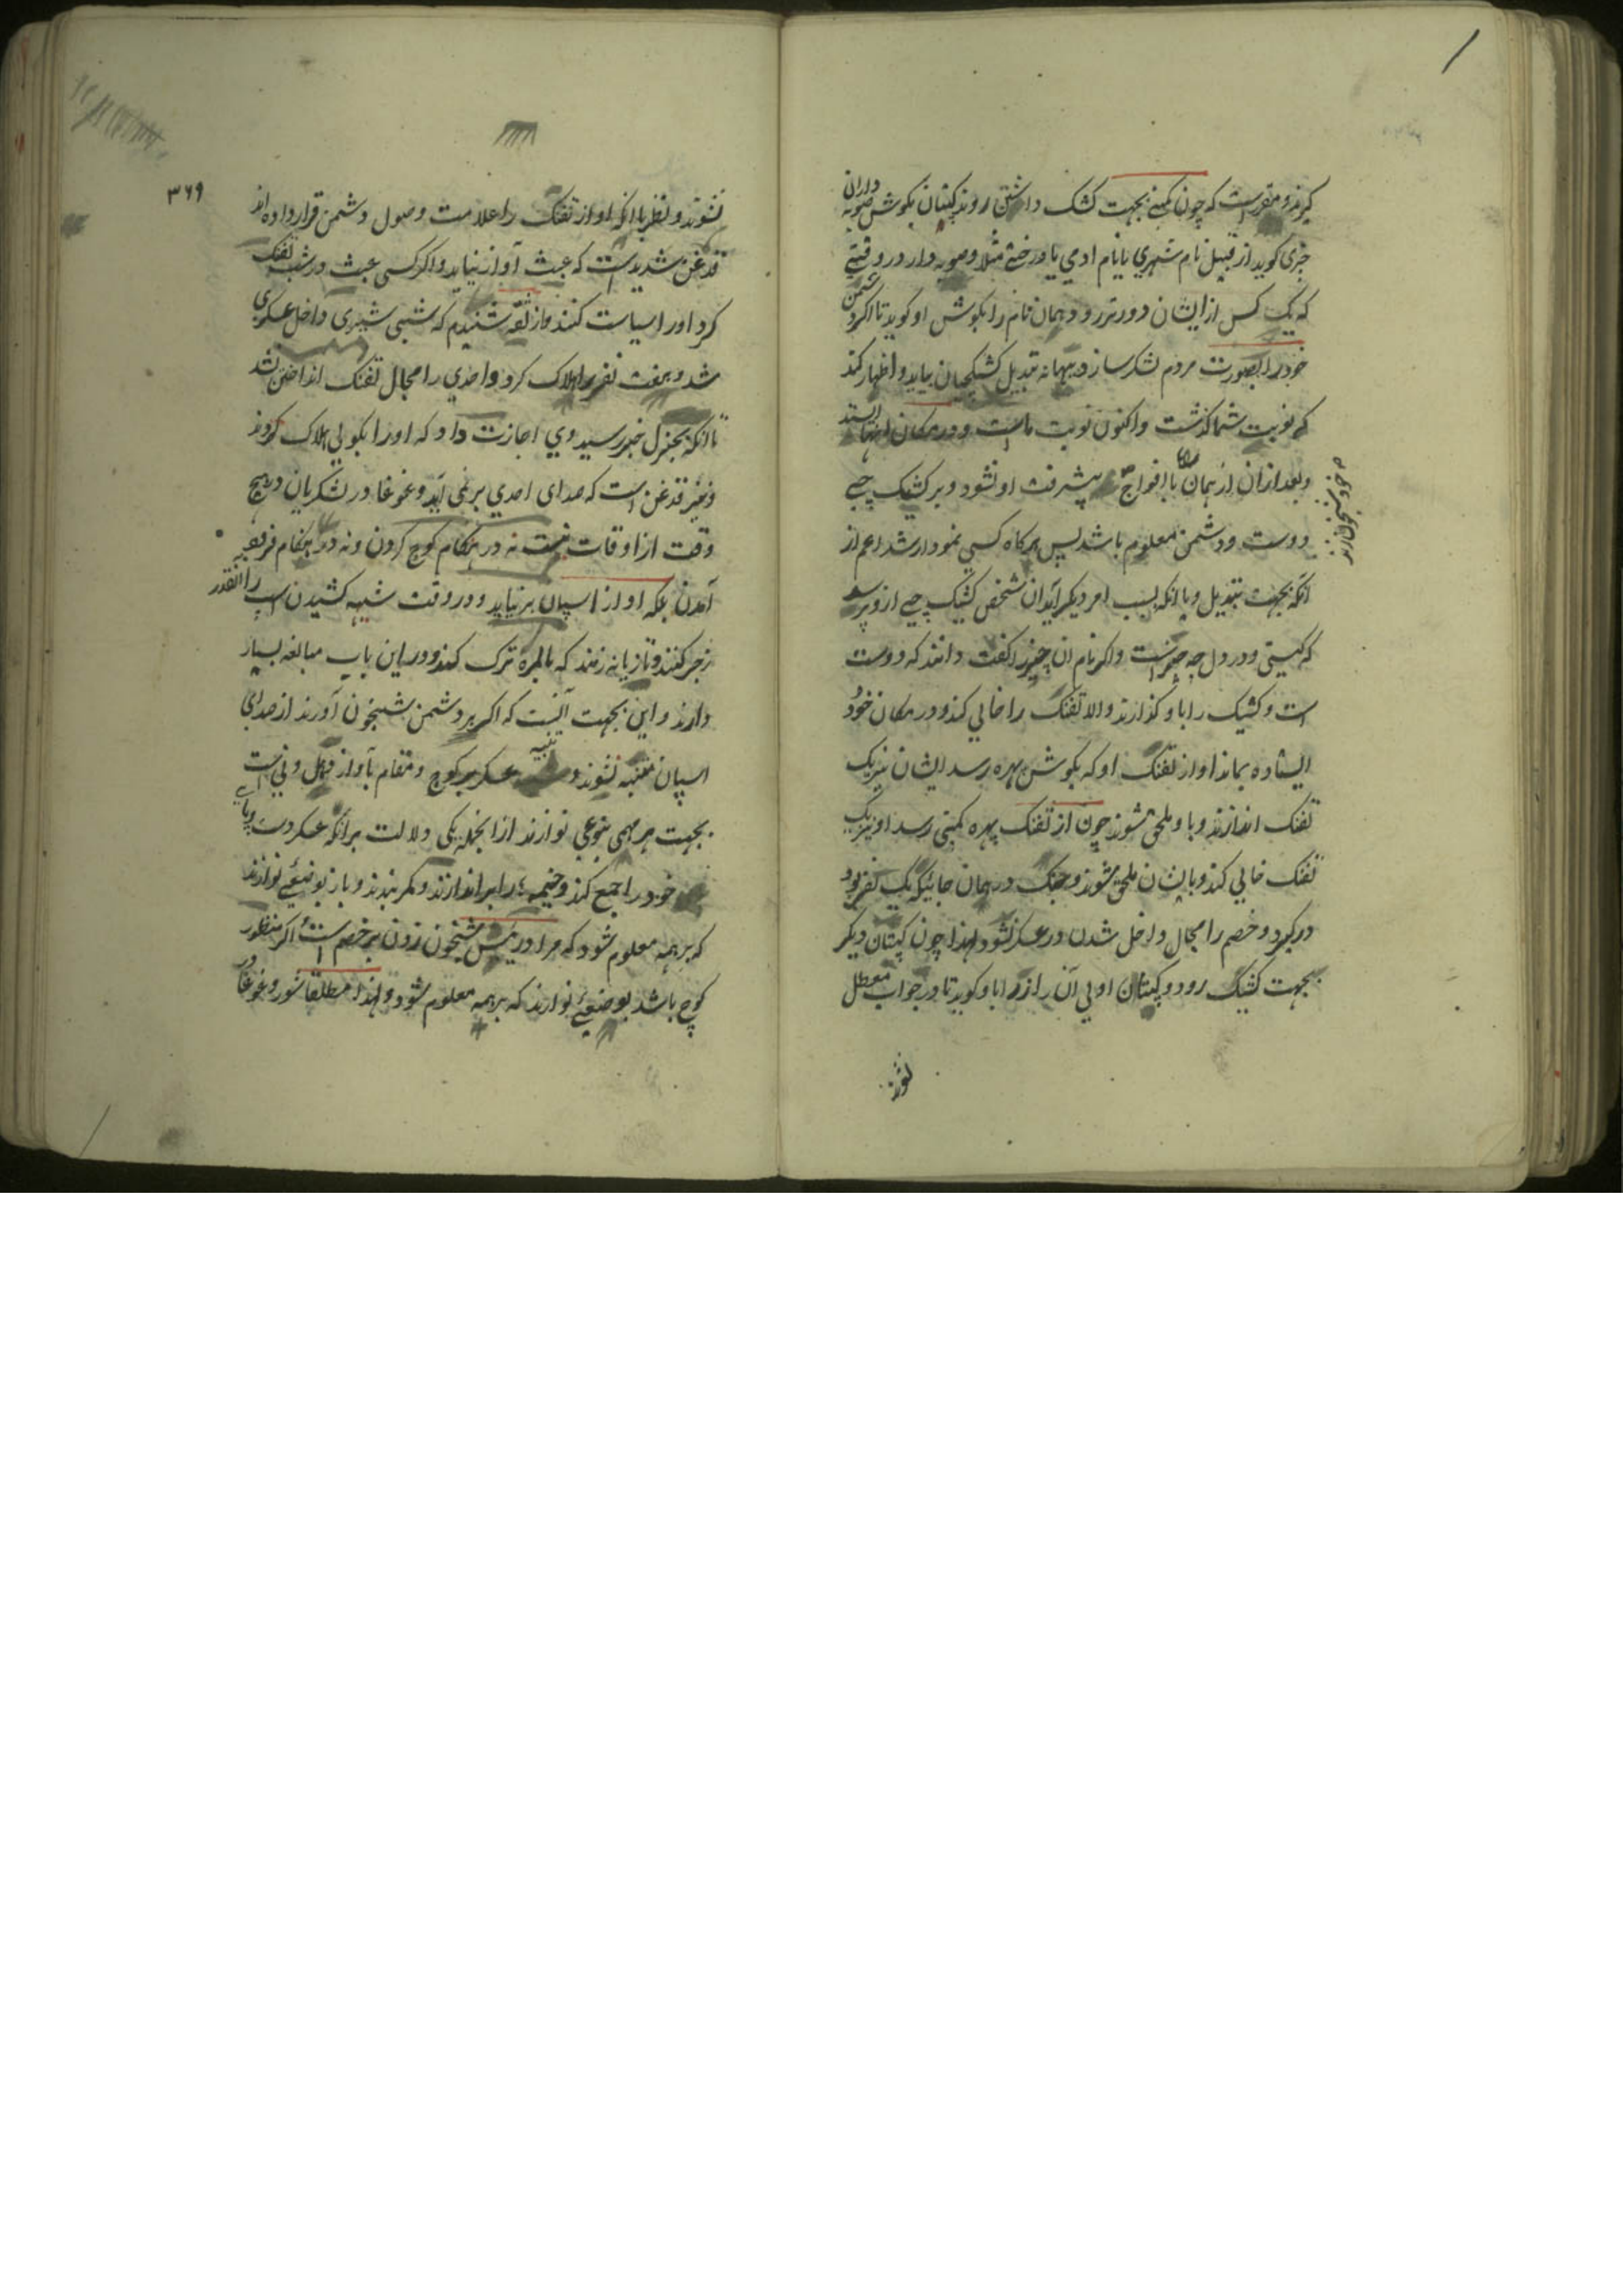 گیرند و مقرر است که چون کمپنی بجهت کشک داشتن روند کپتان بگوش صوبه داران
چیزی گوید از قبیل نام شهری یا نام ادمی یا درختی مثلا و صوبه دار در وقتی
که یک کس از ایشان دورتر رود همان نام را بگوش او گوید تا اگر دشمن
خود را بصورت مردم لشکر سازد و ببهانه تبدیل کشکچیان بیاید و اظهار کند
که نوبت شما گذشت و اکنون نوبت ماست و در مکان اینها ایستد
و بعد از آن از همان با افواج پیشرفت او نشود و بر کشک چی
خود شبخون ارند
دوست و دشمن معلوم باشد پس هرگاه کسی نمودار شد اعم از
آنکه بجهت تبدیل و یا آنکه بسبب امر دیگر آید آن شخص کشیک چی ازو پرسد
که کیستی و در دل چه چیز است و اگر نام ان چیز را گفت دانند که دوست
است و کشیک را باو گذارند والا تفنک را خالی کند و در مکان خود
ایستاده بماند اواز تفنک او که بگوش بهره رسد ایشان نیز یک
تفنک اندازند و باو ملحق شوند چون از تفنک بهره کمپنی رسد او نیز یک
تفنک خالی کند و بایشان ملحق شوند و جنک در همان جائیکه یک نفر بود
در گیرد و خصم را مجال داخل شدن در عسکر نشود لهذا چون کپتان دیگر
بجهت کشیک رود و کپتان اولی آن راز را باو گوید تا در جواب معطل
نشوند
۳۶۹
نشوند و نظر بانکه اواز تفنک را علامت وصول دشمن قرار داده اند
قدغن شدید است که عبث آواز نیاید و اگر کسی عبث در شب تفنک
کرد او را سیاست کنند و از ثقه شنیدم که شبی شیری داخل عسکری
شد و هفت نفر را هلاک کرد و احدی را مجال تفنک انداختن نشد
تا آنکه بجنرل خبر رسید وی اجازت داد که او را بگولی هلاک کردند
و نیز قدغن است که صدای احدی بر نمی آید و غوغا در لشکریان در هیچ
وقت از اوقات نیست نه در هنگام کوچ کردن و نه در هنگام فرود
آمدن بلکه اواز اسپان بر نیاید و در وقت شیهه کشیدن اسپ را انقدر
زجر کنند و تازیانه زنند که بالمره ترک کند و در این باب مبالغه بسیار
دارند و این بجهت آنست که اگر بر دشمن شبخون آورند از صدای
اسپان متنبه نشوند و تنبیه عسکر بر کوچ و مقام بآواز دهل و نی است
بجهت هر مهمی بنوعی نوازند از انجمله یکی دلالت بر آنکه عسکر دست و پای
خود را جمع کند و خیمه ها را بر اندازند و کمر بندند و باز بوضعی نوازند
که بر همه معلوم شود که مراد ریس شبخون زدن بر خصم است اگر منظور
کوچ باشد بوضعی نوازند که بر همه معلوم شود و لهذا مطلقا شور و غوغا در